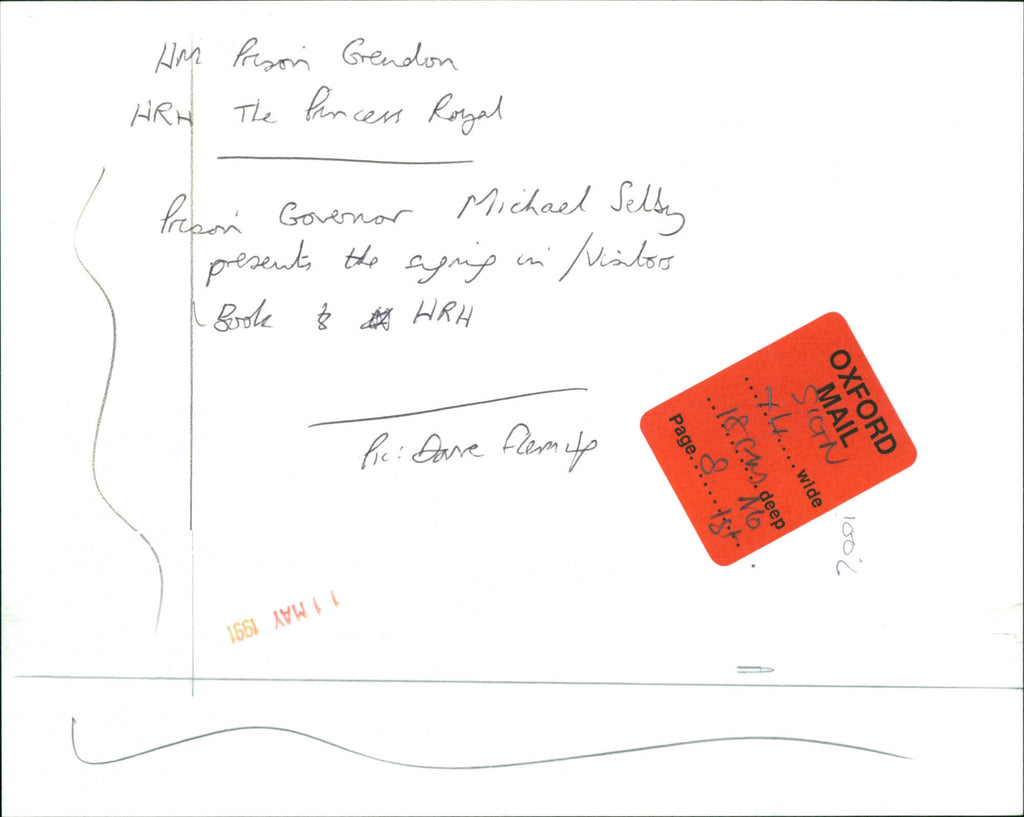 HM Prison Grendon
HRH The Princess Royal
Prison Governor Michael Selby
presents the signing in /Visitors
Book to HRH
Pic: Dave Fleming
OXFORD
MAIL
SIGN
...... wide
18 ems ...deep
Page....8....1st..
100%
11 MAY 1991